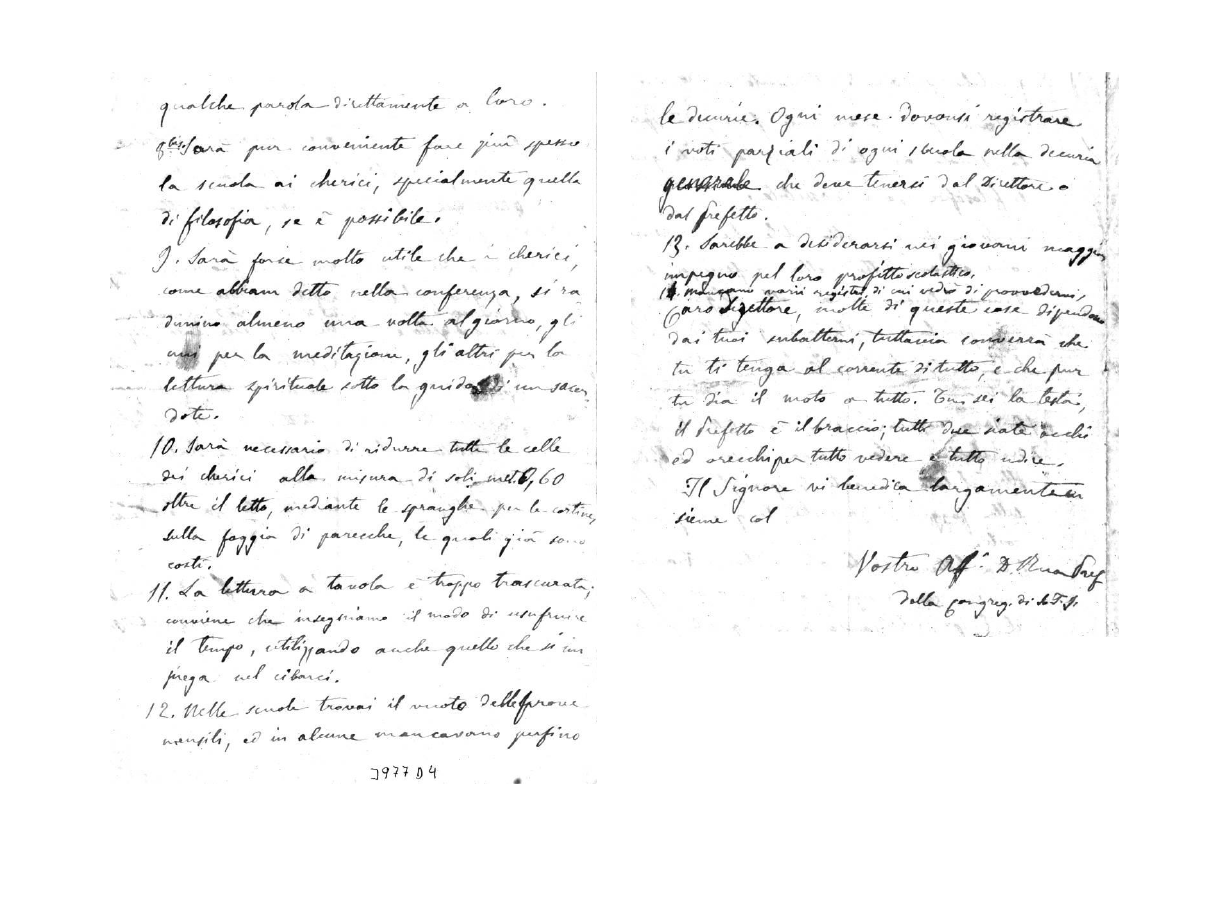 qualche parola direttamente a loro.
8 bis. Sarà pur conveniente fare più spesso
la scuola ai cherici, specialmente quella
di filosofia, se è possibile.
9. Sarà forse molto utile che i cherici,
come abbiam detto nella conferenza, si ra
dunino almeno una volta al giorno, gli
uni per la meditazione, gli altri per la
lettura spirituale sotto la guida di un sacer
dote.
10. Sarà necessario di ridurre tutte le celle
dei cherici alla misura di soli met. 0,60
oltre il letto, mediante le spranghe per le cortine,
sulla foggia di parecche, le quali già sono
costì.
11. La lettura a tavola è troppo trascurata;
conviene che insegniamo il modo di usufruire
il tempo, utilizzando anche quello che si im
piega nel cibarci.
12. Nelle scuole trovai il vuoto delle prove
mensili, ed in alcune mancavano perfino
J977 D4
le decurie. Ogni mese dovonsi registrare
i voti parziali di ogni scuola nella decuria
generale che deve tenersi dal Direttore o
dal Prefetto.
13. Sarebbe a desiderarsi nei giovani maggior
impegno pel loro profitto scolastico.
14. mancano varii registri di cui vedro di provvedervi,
Caro Direttore, molte di queste cose dipendono
dai tuoi subalterni, tuttavia converrà che
tu ti tenga al corrente di tutto, e che pur
tu dia il moto a tutto. Tu sei la testa,
il Prefetto è il braccio; tutti due siate occhi
ed orecchi per tutto vedere e tutto udire.
Il Signore vi benedica largamente in
sieme col
Vostro Aff.º D. Rua Pref
della congreg. di S. F. S.